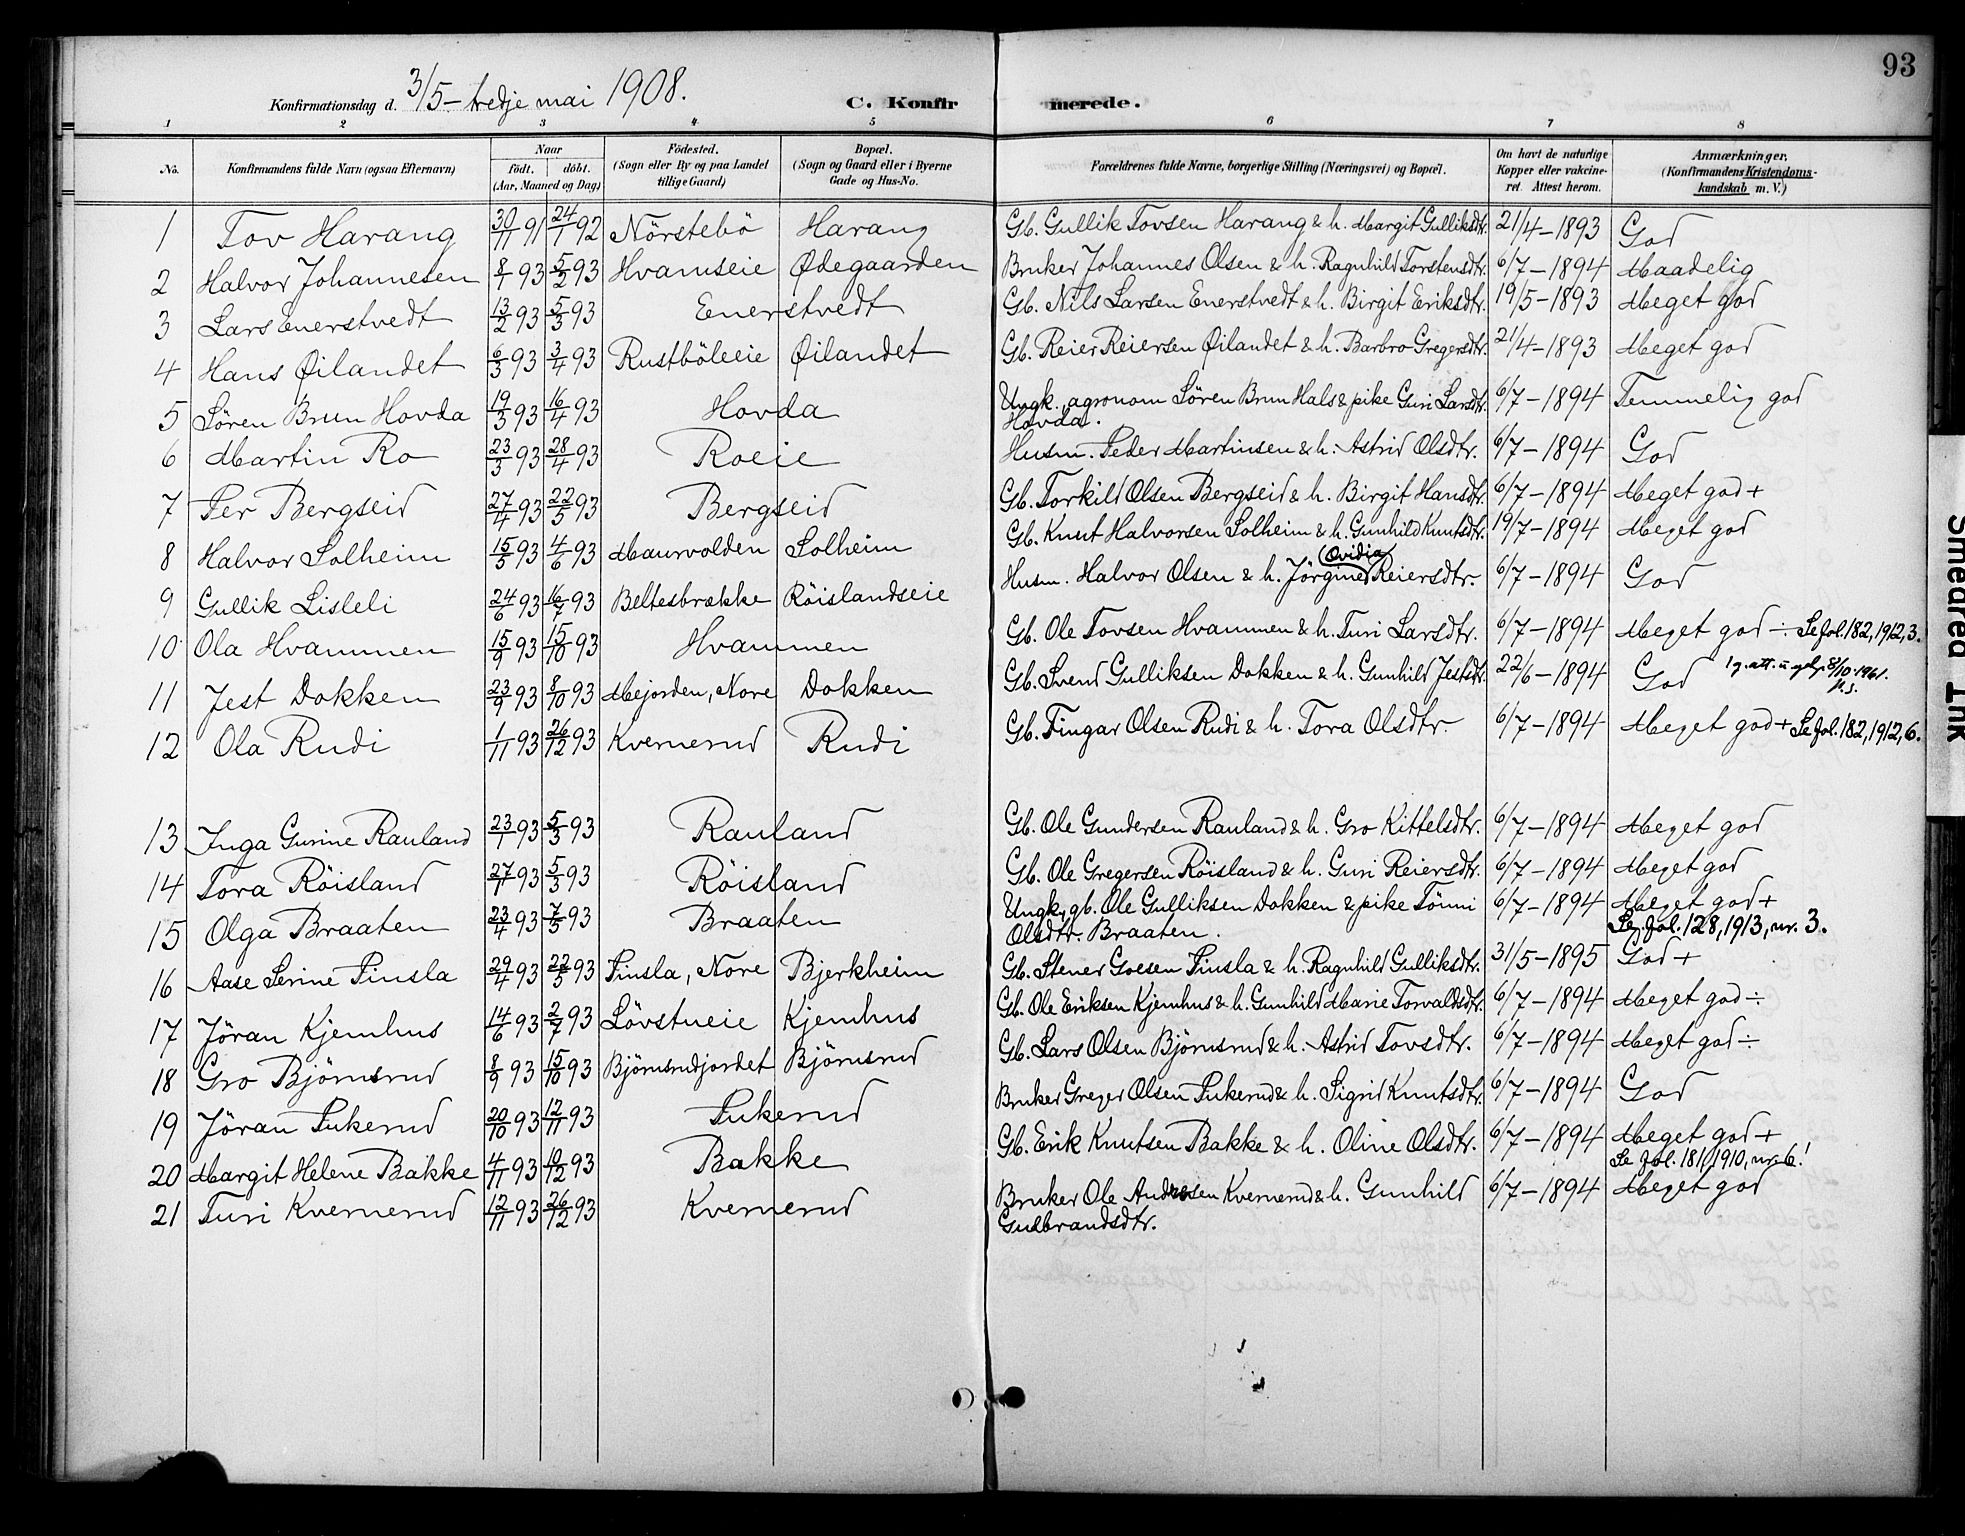 93
Konfirmationsdag d. 3/5 – tredje mai 1908. C. Konfirmerede.
1 2 3 4 5 6 7 8
No. Konfirmandens fulde Navn (ogsaa Efternavn) Naar født. døbt. (Aar, Maaned og Dag) Fødested. (Sogn eller By og paa Landet tillige Gaard) Bopæl. (Sogn og Gaard eller i Byerne Gade og Hus-No. Forældrenes fulde Navne, borgerlige Stilling (Næringsvei) og Bopæl. Om havt de naturlige Kopper eller vakcineret. Attest herom. Anmærkninger. (Konfirmandens Kristendomskundskab m. V.)
1 Tov Harang 30/11 91 24/1 92 Nörstebö Harang Gb. Gullik Tovsen Harang & h. Margit Gulliksdtr. 21/4 – 1893 God
2 Halvor Johannesen 8/1 93 5/2 93 Hvamseie Ødegaarden Bruker Johannes Olsen & h. Ragnhild Torstensdtr. 6/7 – 1894 Maadelig
3 Lars Enerstvedt 13/2 93 5/3 93 Enerstvedt Gb. Nils Larsen Enerstvedt & h. Birgit Eriksdtr. 19/5 – 1893 Meget god
4 Hans Øilandet 6/3 93 3/4 93 Rustböleeie Øilandet Gb. Reier Reiersen Øilandet & h. Barbro Gregersdtr. 21/4 – 1893 Meget god
5 Sören Brun Hovda 19/3 93 16/4 93 Hovda Ungk., agronom Sören Brun Hals & pike Guri Larsdtr. 6/7 – 1894 Temmelig god
Hovda.
6 Martin Ro 23/3 93 28/4 93 Roeie Husm. Peder Martinsen & h. Astrid Olsdtr. 6/7 – 1894 God
7 Per Bergseid 27/4 93 22/5 93 Bergseid Gb. Torkild Olsen Bergseid & h. Birgit Hansdtr. 6/7 – 1894 Meget god +
8 Halvor Solheim 15/5 93 4/6 93 Maurvolden Solheim Gb. Knut Halvorsen Solheim & h. Gunhild Knutsdtr. 19/7 – 1894 Meget god
(Ovidia)
9 Gullik Lisleli 24/6 93 16/7 93 Beltesbrække Röislandseie Husm. Halvor Olsen & h. Jörgine Reiersdtr. 6/7 – 1894 God
10 Ola Hvammen 15/9 93 15/10 93 Hvammen Gb. Ole Tovsen Hvammen & h. Turi Larsdtr. 6/7 – 1894 Meget god ÷ Se fol. 182, 1912, 3.
11 Jest Dokken 23/9 93 8/10 93 Mejorden, Nore Dokken Gb. Svend Gulliksen Dokken & h. Gunhild Jestsdtr. 22/6 – 1894 God 8/10-1961.
12 Ola Rudi 1/11 93 26/12 93 Kvernerud Rudi Gb. Fingar Olsen Rudi & h. Tora Olsdtr. 6/7 – 1894 Meget god + Se fol. 182, 1912, 6.
13 Inga Gurine Rauland 23/1 93 5/3 93 Rauland Gb. Ole Gundersen Rauland & h. Gro Kittelsdtr. 6/7 – 1894 Meget god
14 Tora Röisland 27/1 93 5/3 93 Röisland Gb. Ole Gregersen Röisland & h. Guri Reiersdtr. 6/7 – 1894 Meget god
15 Olga Braaten 23/4 93 7/5 93 Braaten Ungk., gb. Ole Gulliksen Dokken & pike Tönni 6/7 – 1894 Meget god +
Olsdtr. Braaten. Se fol. 128, 1913, nr. 3.
16 Aase Serine Finsla 29/4 93 22/5 93 Finsla, Nore Bjerkheim Gb. Stener Goesen Finsla & h. Ragnhild Gulliksdtr. 31/5 – 1895 God +
17 Jöran Kjemhus 14/6 93 2/7 93 Lövstueie Kjemhus Gb. Ole Eriksen Kjemhus & h. Gunhild Marie Torvaldsdtr. 6/7 – 1894 Meget god ÷
18 Gro Björnsrud 8/9 93 15/10 93 Björnsrudjordet Björnsrud Gb. Lars Olsen Björnsrud & h. Astrid Tovsdtr. 6/7 – 1894 Meget god ÷
19 Jöran Fukerud 20/10 93 12/11 93 Fukerud Bruker Greger Olsen Fukerud & h. Sigrid Knutsdtr. 6/7 – 1894 God
20 Margit Helene Bakke 4/11 93 10/12 93 Bakke Gb. Erik Knutsen Bakke & h. Oline Olsdtr. 6/7 – 1894 Meget god +
Se fol. 181, 1910, nr. 6!
21 Turi Kvernerud 12/11 93 26/12 93 Kvernerud Bruker Ole Andersen Kvernerud & h. Gunhild 6/7 – 1894 Meget god
Gulbrandsdtr.
Smeared Ink